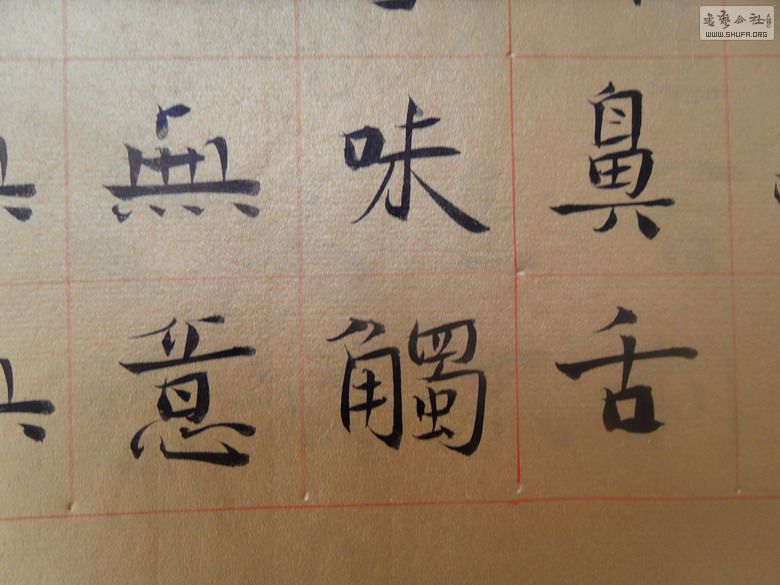 鼻舌
味觸
無意
書藝公社
WWW.SHUFA.ORG